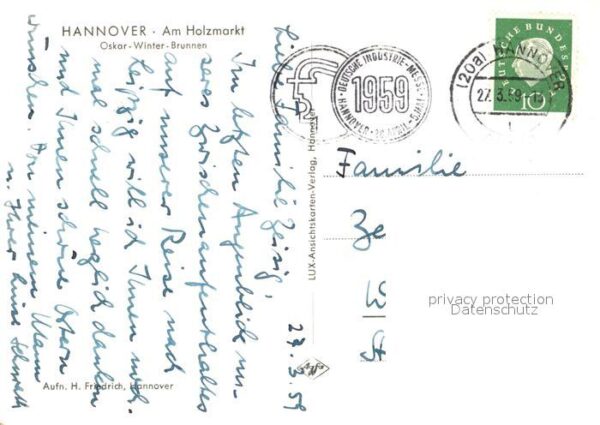 HANNOVER · Am Holzmarkt
Oskar-Winter-Brunnen
27.3.59
Liebe Familie Zeisig,
Im letzten Augenblick un-
seres Zwischenaufenthaltes
auf unserer Reise nach
Leipzig will ich Ihnen noch
mal schnell herzlich danken
und Ihnen schöne Ostern
wünschen. Von meinem Mann
u. Ihrer
Aufn. H. Friedrich, Hannover
LUX-Ansichtskarten-Verlag, Hannover
DEUTSCHE INDUSTRIE-MESSE
1959
HANNOVER
DEUTSCHE BUNDESPOST
10
(20a) HANNOVER
27.3.59
Familie
Ze
W
St
privacy protection
Datenschutz